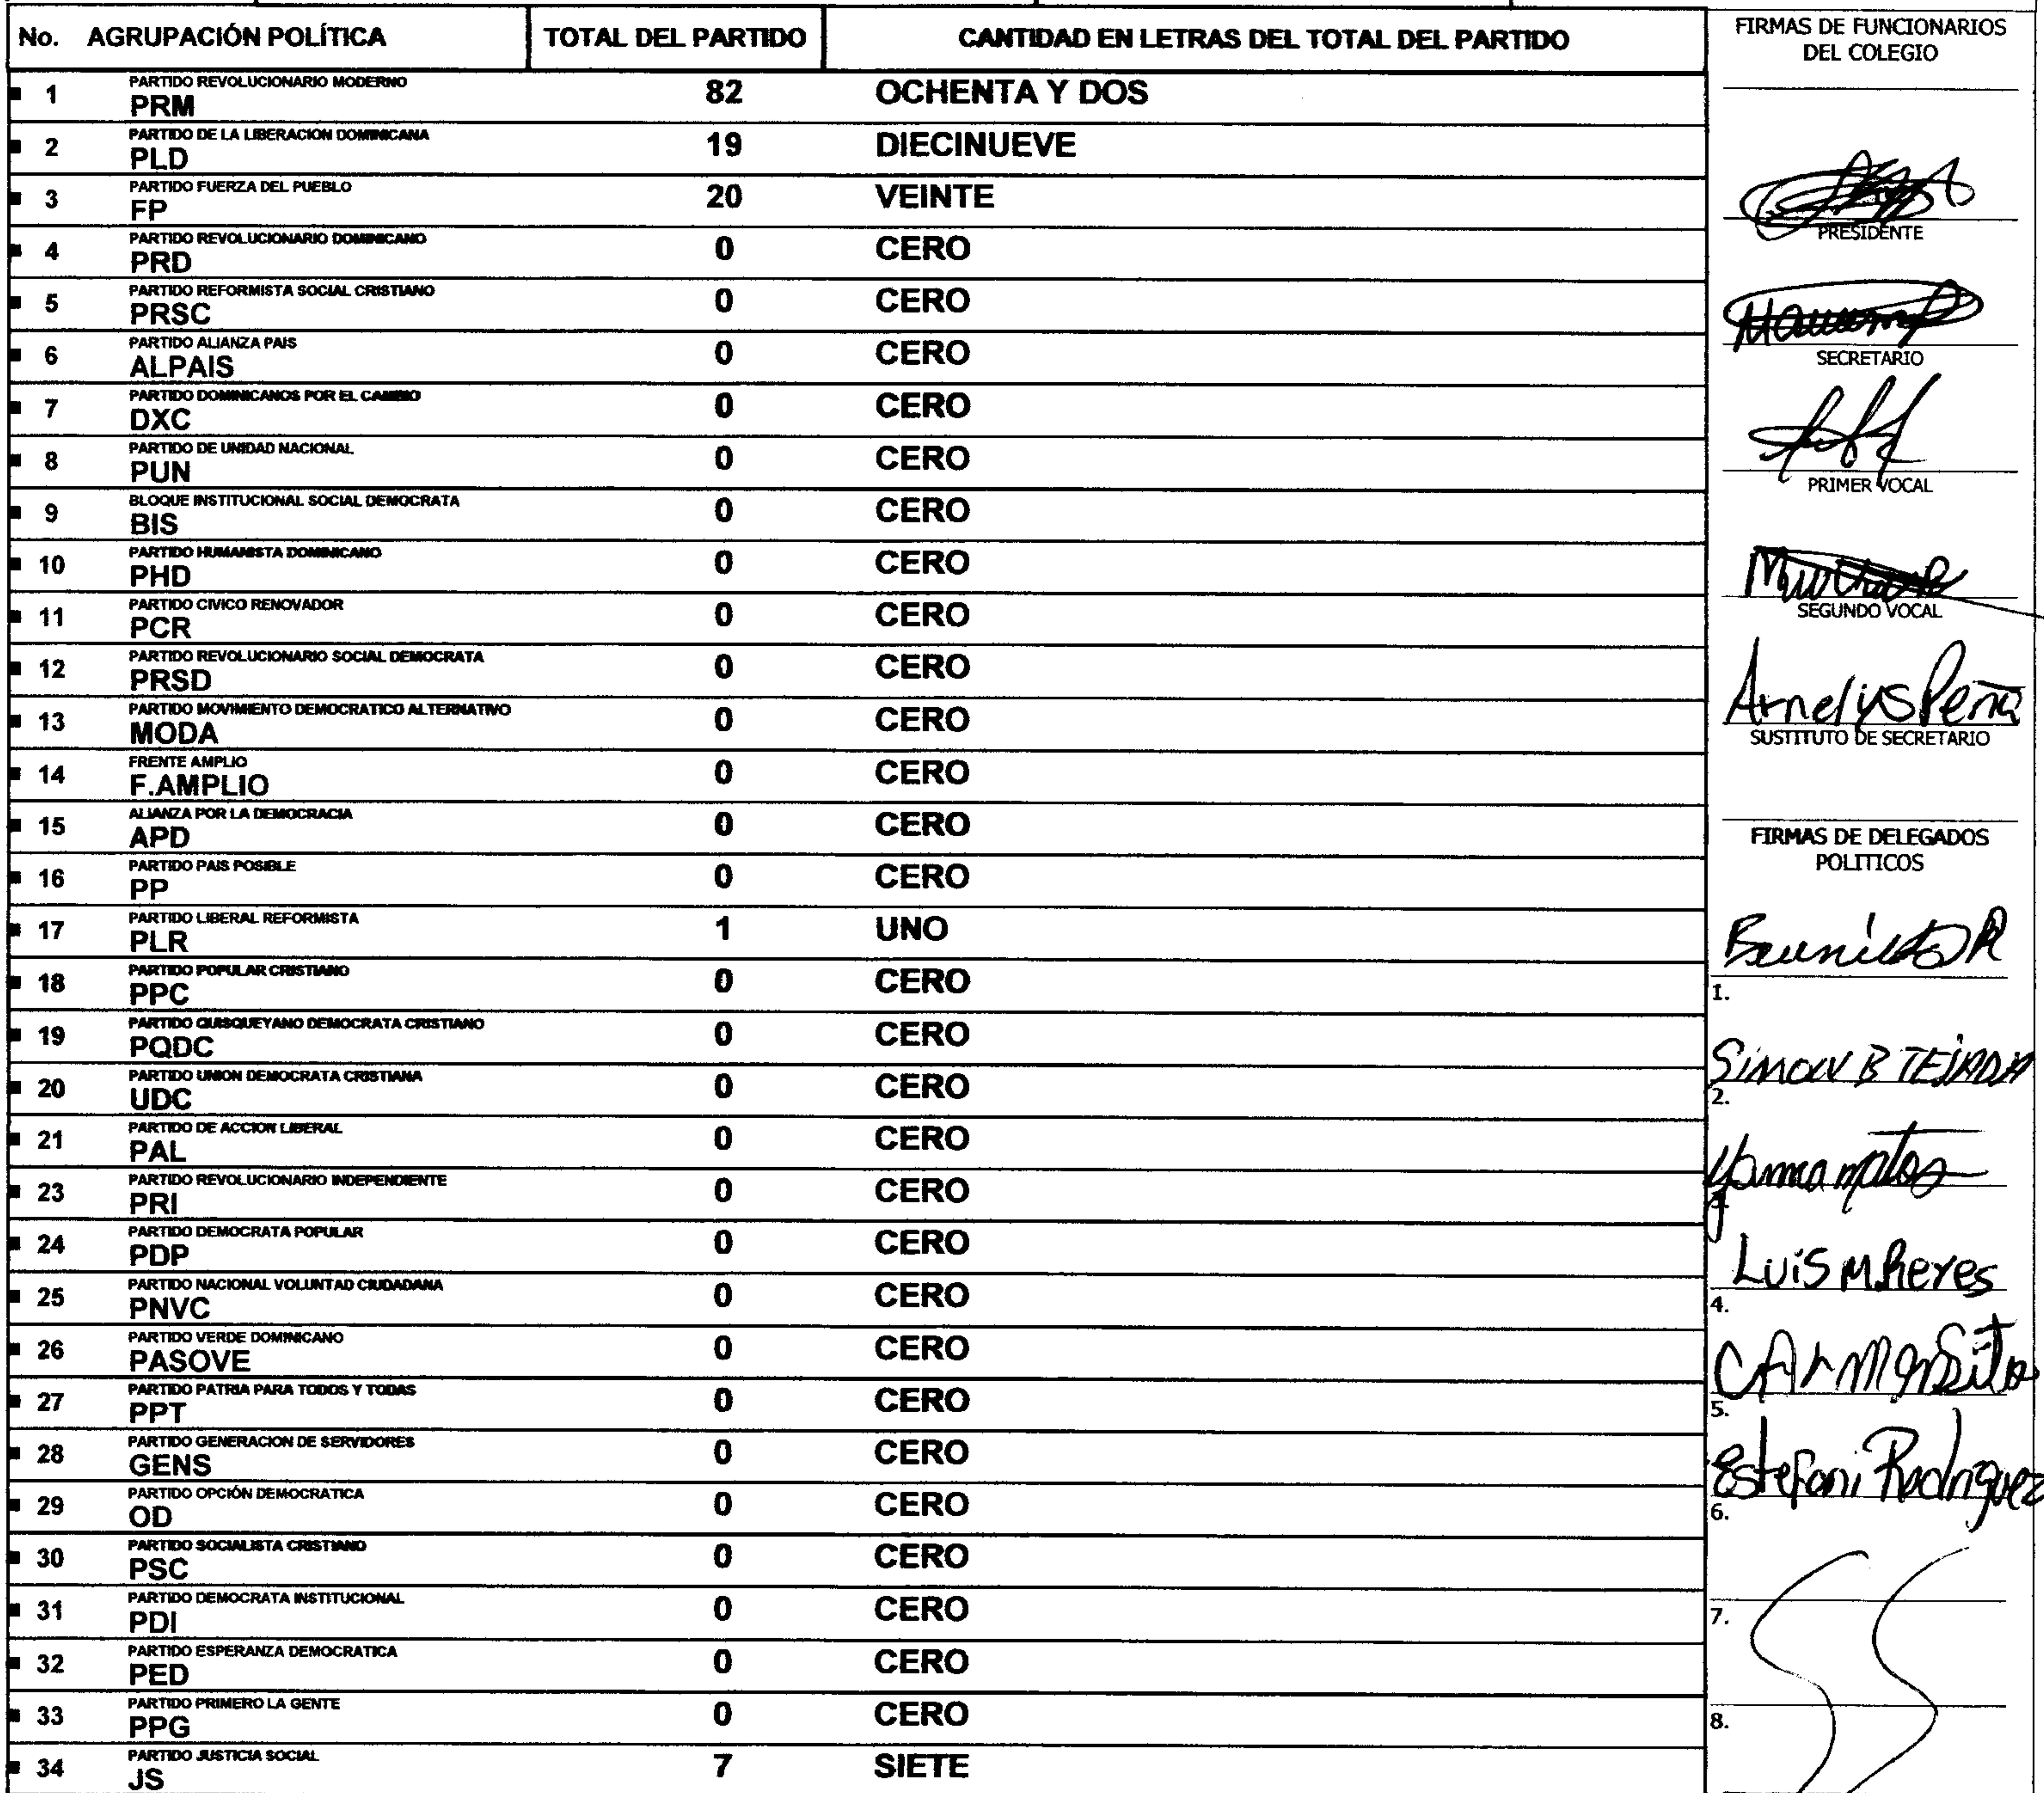 No. AGRUPACIÓN POLÍTICA TOTAL DEL PARTIDO CANTIDAD EN LETRAS DEL TOTAL DEL PARTIDO
PARTIDO REVOLUCIONARIO MODERNO
1 PRM 82 OCHENTA Y DOS
PARTIDO DE LA LIBERACION DOMINICANA
2 PLD 19 DIECINUEVE
PARTIDO FUERZA DEL PUEBLO
3 FP 20 VEINTE
PARTIDO REVOLUCIONARIO DOMINICANO
4 PRD 0 CERO
PARTIDO REFORMISTA SOCIAL CRISTIANO
5 PRSC 0 CERO
PARTIDO ALIANZA PAIS
6 ALPAIS 0 CERO
PARTIDO DOMINICANOS POR EL CAMBIO
7 DXC 0 CERO
PARTIDO DE UNIDAD NACIONAL
8 PUN 0 CERO
BLOQUE INSTITUCIONAL SOCIAL DEMOCRATA
9 BIS 0 CERO
PARTIDO HUMANISTA DOMINICANO
10 PHD 0 CERO
PARTIDO CIVICO RENOVADOR
11 PCR 0 CERO
PARTIDO REVOLUCIONARIO SOCIAL DEMOCRATA
12 PRSD 0 CERO
PARTIDO MOVIMIENTO DEMOCRATICO ALTERNATIVO
13 MODA 0 CERO
FRENTE AMPLIO
14 F.AMPLIO 0 CERO
ALIANZA POR LA DEMOCRACIA
15 APD 0 CERO
PARTIDO PAIS POSIBLE
16 PP 0 CERO
PARTIDO LIBERAL REFORMISTA
17 PLR 1 UNO
PARTIDO POPULAR CRISTIANO
18 PPC 0 CERO
PARTIDO QUISQUEYANO DEMOCRATA CRISTIANO
19 PQDC 0 CERO
PARTIDO UNION DEMOCRATA CRISTIANA
20 UDC 0 CERO
PARTIDO DE ACCION LIBERAL
21 PAL 0 CERO
PARTIDO REVOLUCIONARIO INDEPENDIENTE
23 PRI 0 CERO
PARTIDO DEMOCRATA POPULAR
24 PDP 0 CERO
PARTIDO NACIONAL VOLUNTAD CIUDADANA
25 PNVC 0 CERO
PARTIDO VERDE DOMINICANO
26 PASOVE 0 CERO
PARTIDO PATRIA PARA TODOS Y TODAS
27 PPT 0 CERO
PARTIDO GENERACION DE SERVIDORES
28 GENS 0 CERO
PARTIDO OPCIÓN DEMOCRATICA
29 OD 0 CERO
PARTIDO SOCIALISTA CRISTIANO
30 PSC 0 CERO
PARTIDO DEMOCRATA INSTITUCIONAL
31 PDI 0 CERO
PARTIDO ESPERANZA DEMOCRATICA
32 PED 0 CERO
PARTIDO PRIMERO LA GENTE
33 PPG 0 CERO
PARTIDO JUSTICIA SOCIAL
34 JS 7 SIETE
FIRMAS DE FUNCIONARIOS
DEL COLEGIO
PRESIDENTE
SECRETARIO
PRIMER VOCAL
SEGUNDO VOCAL
Arnelys Peña
SUSTITUTO DE SECRETARIO
FIRMAS DE DELEGADOS
POLITICOS
1.
SIMON B TEJADA
2.
3.
Luis M. Reyes
4.
5.
Estefani Rodriguez
6.
7.
8.